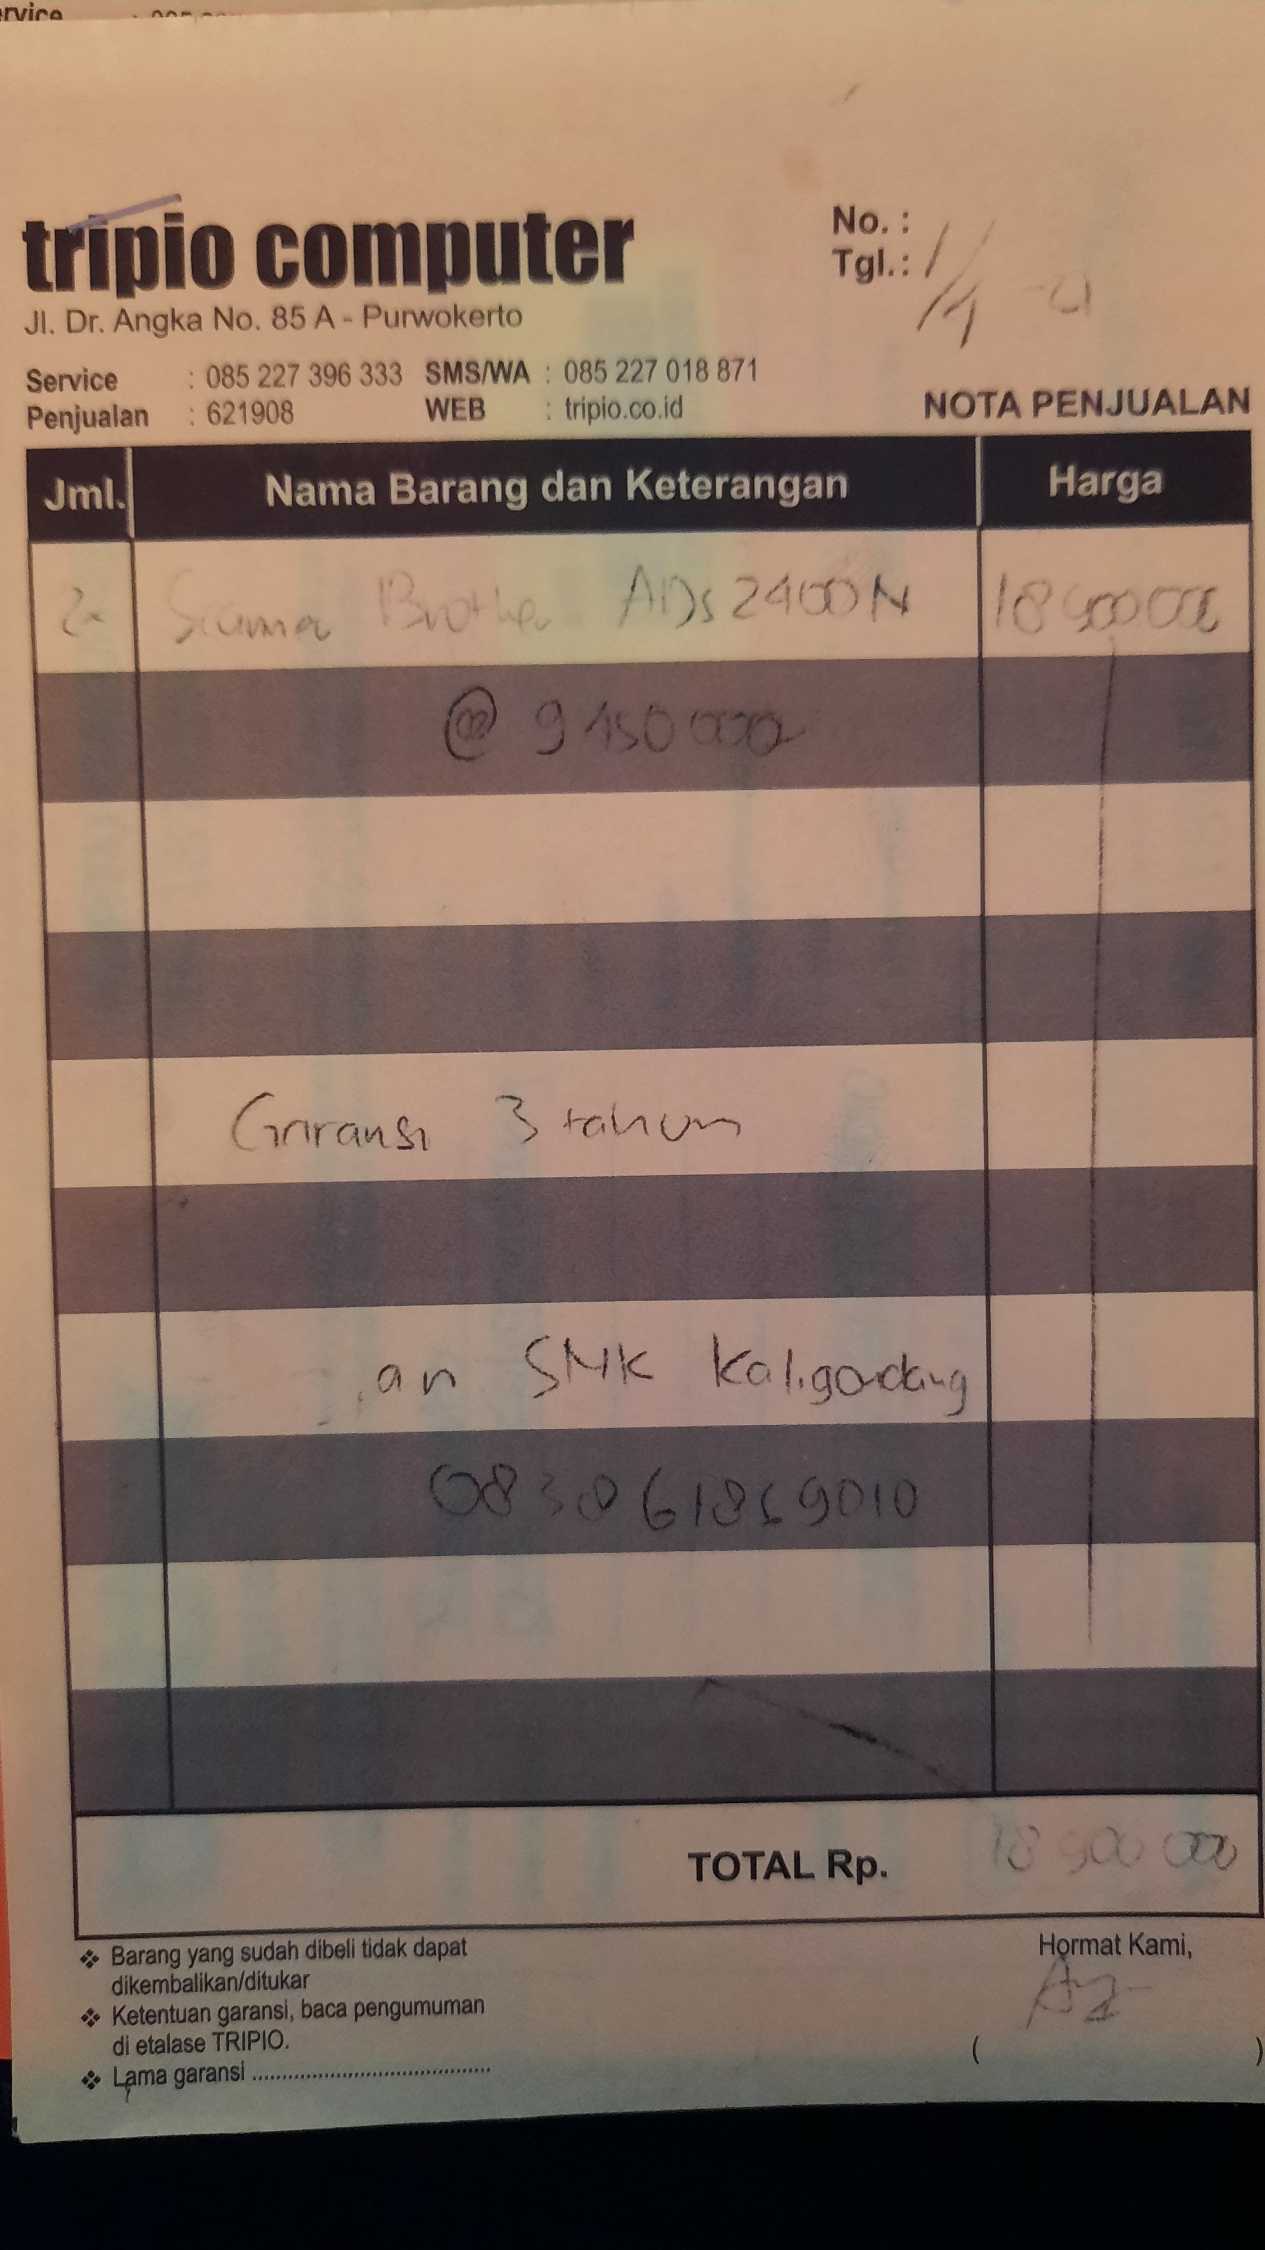 rvice
tripio computer
Jl. Dr. Angka No. 85 A - Purwokerto
No. :
Tgl. :
Service : 085 227 396 333 SMS/WA : 085 227 018 871
Penjualan : 621908 WEB : tripio.co.id
NOTA PENJUALAN
Jml. Nama Barang dan Keterangan Harga
2 Scanner Brother ADS 2400N 18 900 000
@ 9 450 000
Garansi 3 tahun
an SMK Kaligondang
TOTAL Rp. 18 900 000
❖ Barang yang sudah dibeli tidak dapat
dikembalikan/ditukar
❖ Ketentuan garansi, baca pengumuman
di etalase TRIPIO.
❖ Lama garansi ........................................
Hormat Kami,
( )